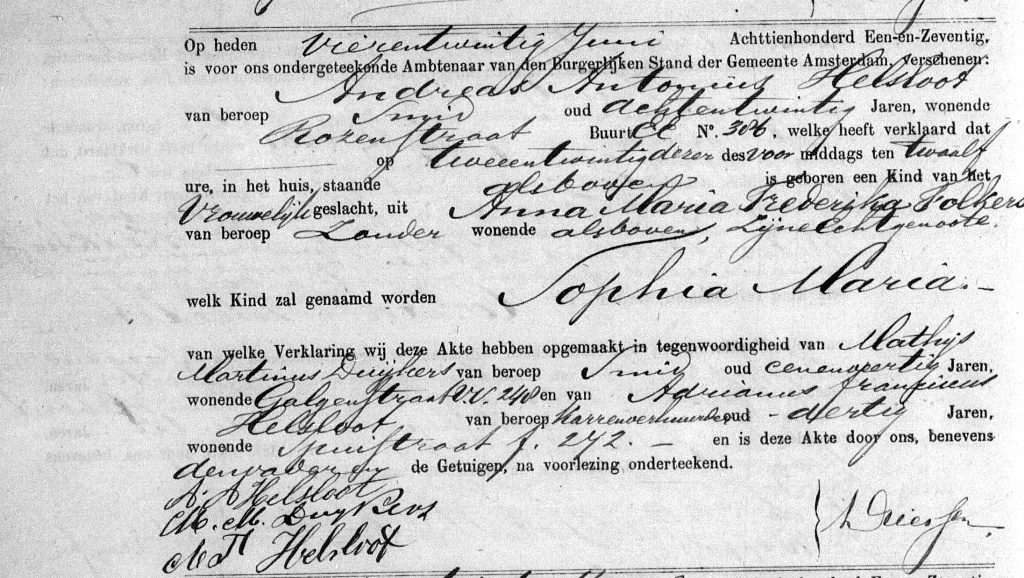 Op heden Vierentwintig Juni Achttienhonderd Een-en-Zeventig,
is voor ons ondergeteekende Ambtenaar van den Burgerlijken Stand der Gemeente Amsterdam, verschenen:
Andreas Antonius Helsloot
van beroep Smid oud achtentwintig Jaren, wonende
Rozenstraat Buurt CC No. 306, welke heeft verklaard dat
op tweeentwintig dezer des voor middags ten twaalf
ure, in het huis, staande alsboven is geboren een Kind van het
Vrouwelijk geslacht, uit Anna Maria Frederika Folkers
van beroep Zonder wonende alsboven, zijne Echtgenoote.
welk Kind zal genaamd worden Sophia Maria
van welke Verklaring wij deze Akte hebben opgemaakt in tegenwoordigheid van Mathijs
Martinus Duijkers van beroep Smid oud eenenveertig Jaren,
wonende Galgenstraat VV. 248 en van Adrianus franciscus
Helsloot van beroep Karrenverhuurder oud dertig Jaren,
wonende Spuistraat f. 272. en is deze Akte door ons, benevens
den vader en de Getuigen, na voorlezing onderteekend.
A. A Helsloot
M. M. Duykers
Helsloot